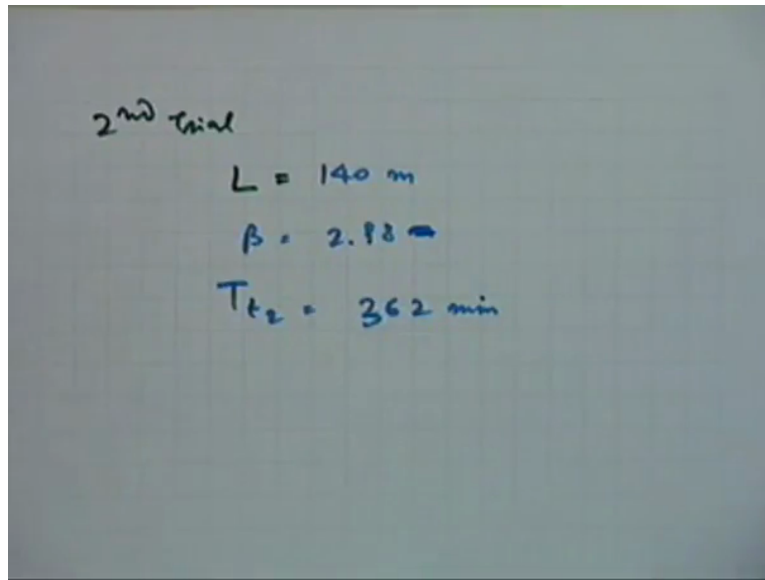 2nd trial
L = 140 m
β = 2.98
Tt2 = 362 min